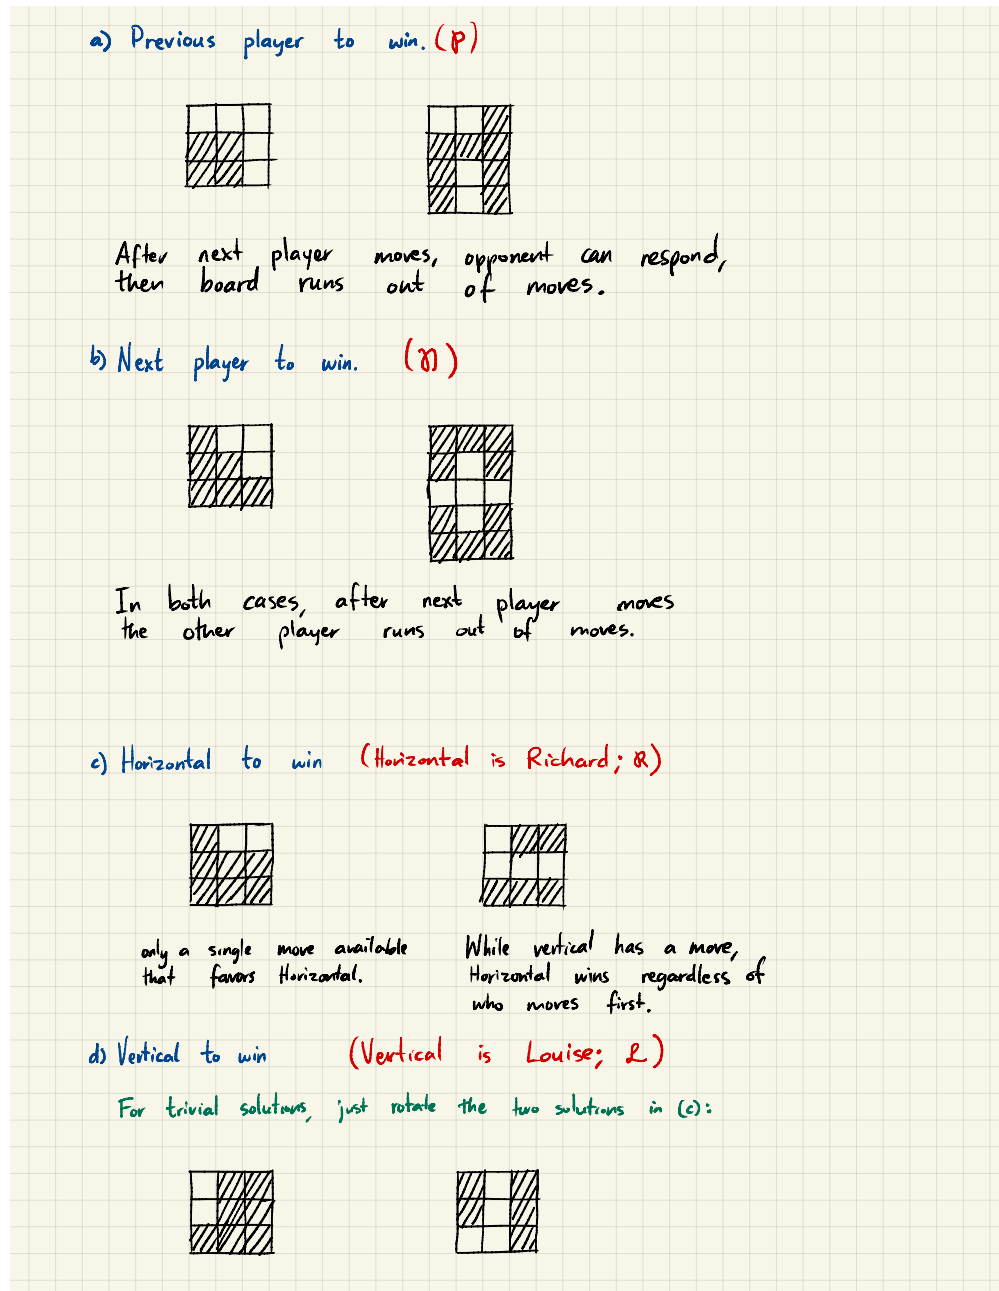 a) Previous player to win. (P)
After next player moves, opponent can respond,
then board runs out of moves.
b) Next player to win. (N)
In both cases, after next player moves
the other player runs out of moves.
c) Horizontal to win (Horizontal is Richard; R)
only a single move available
that favors Horizontal.
While vertical has a move,
Horizontal wins regardless of
who moves first.
d) Vertical to win (Vertical is Louise; L)
For trivial solutions, just rotate the two solutions in (c):